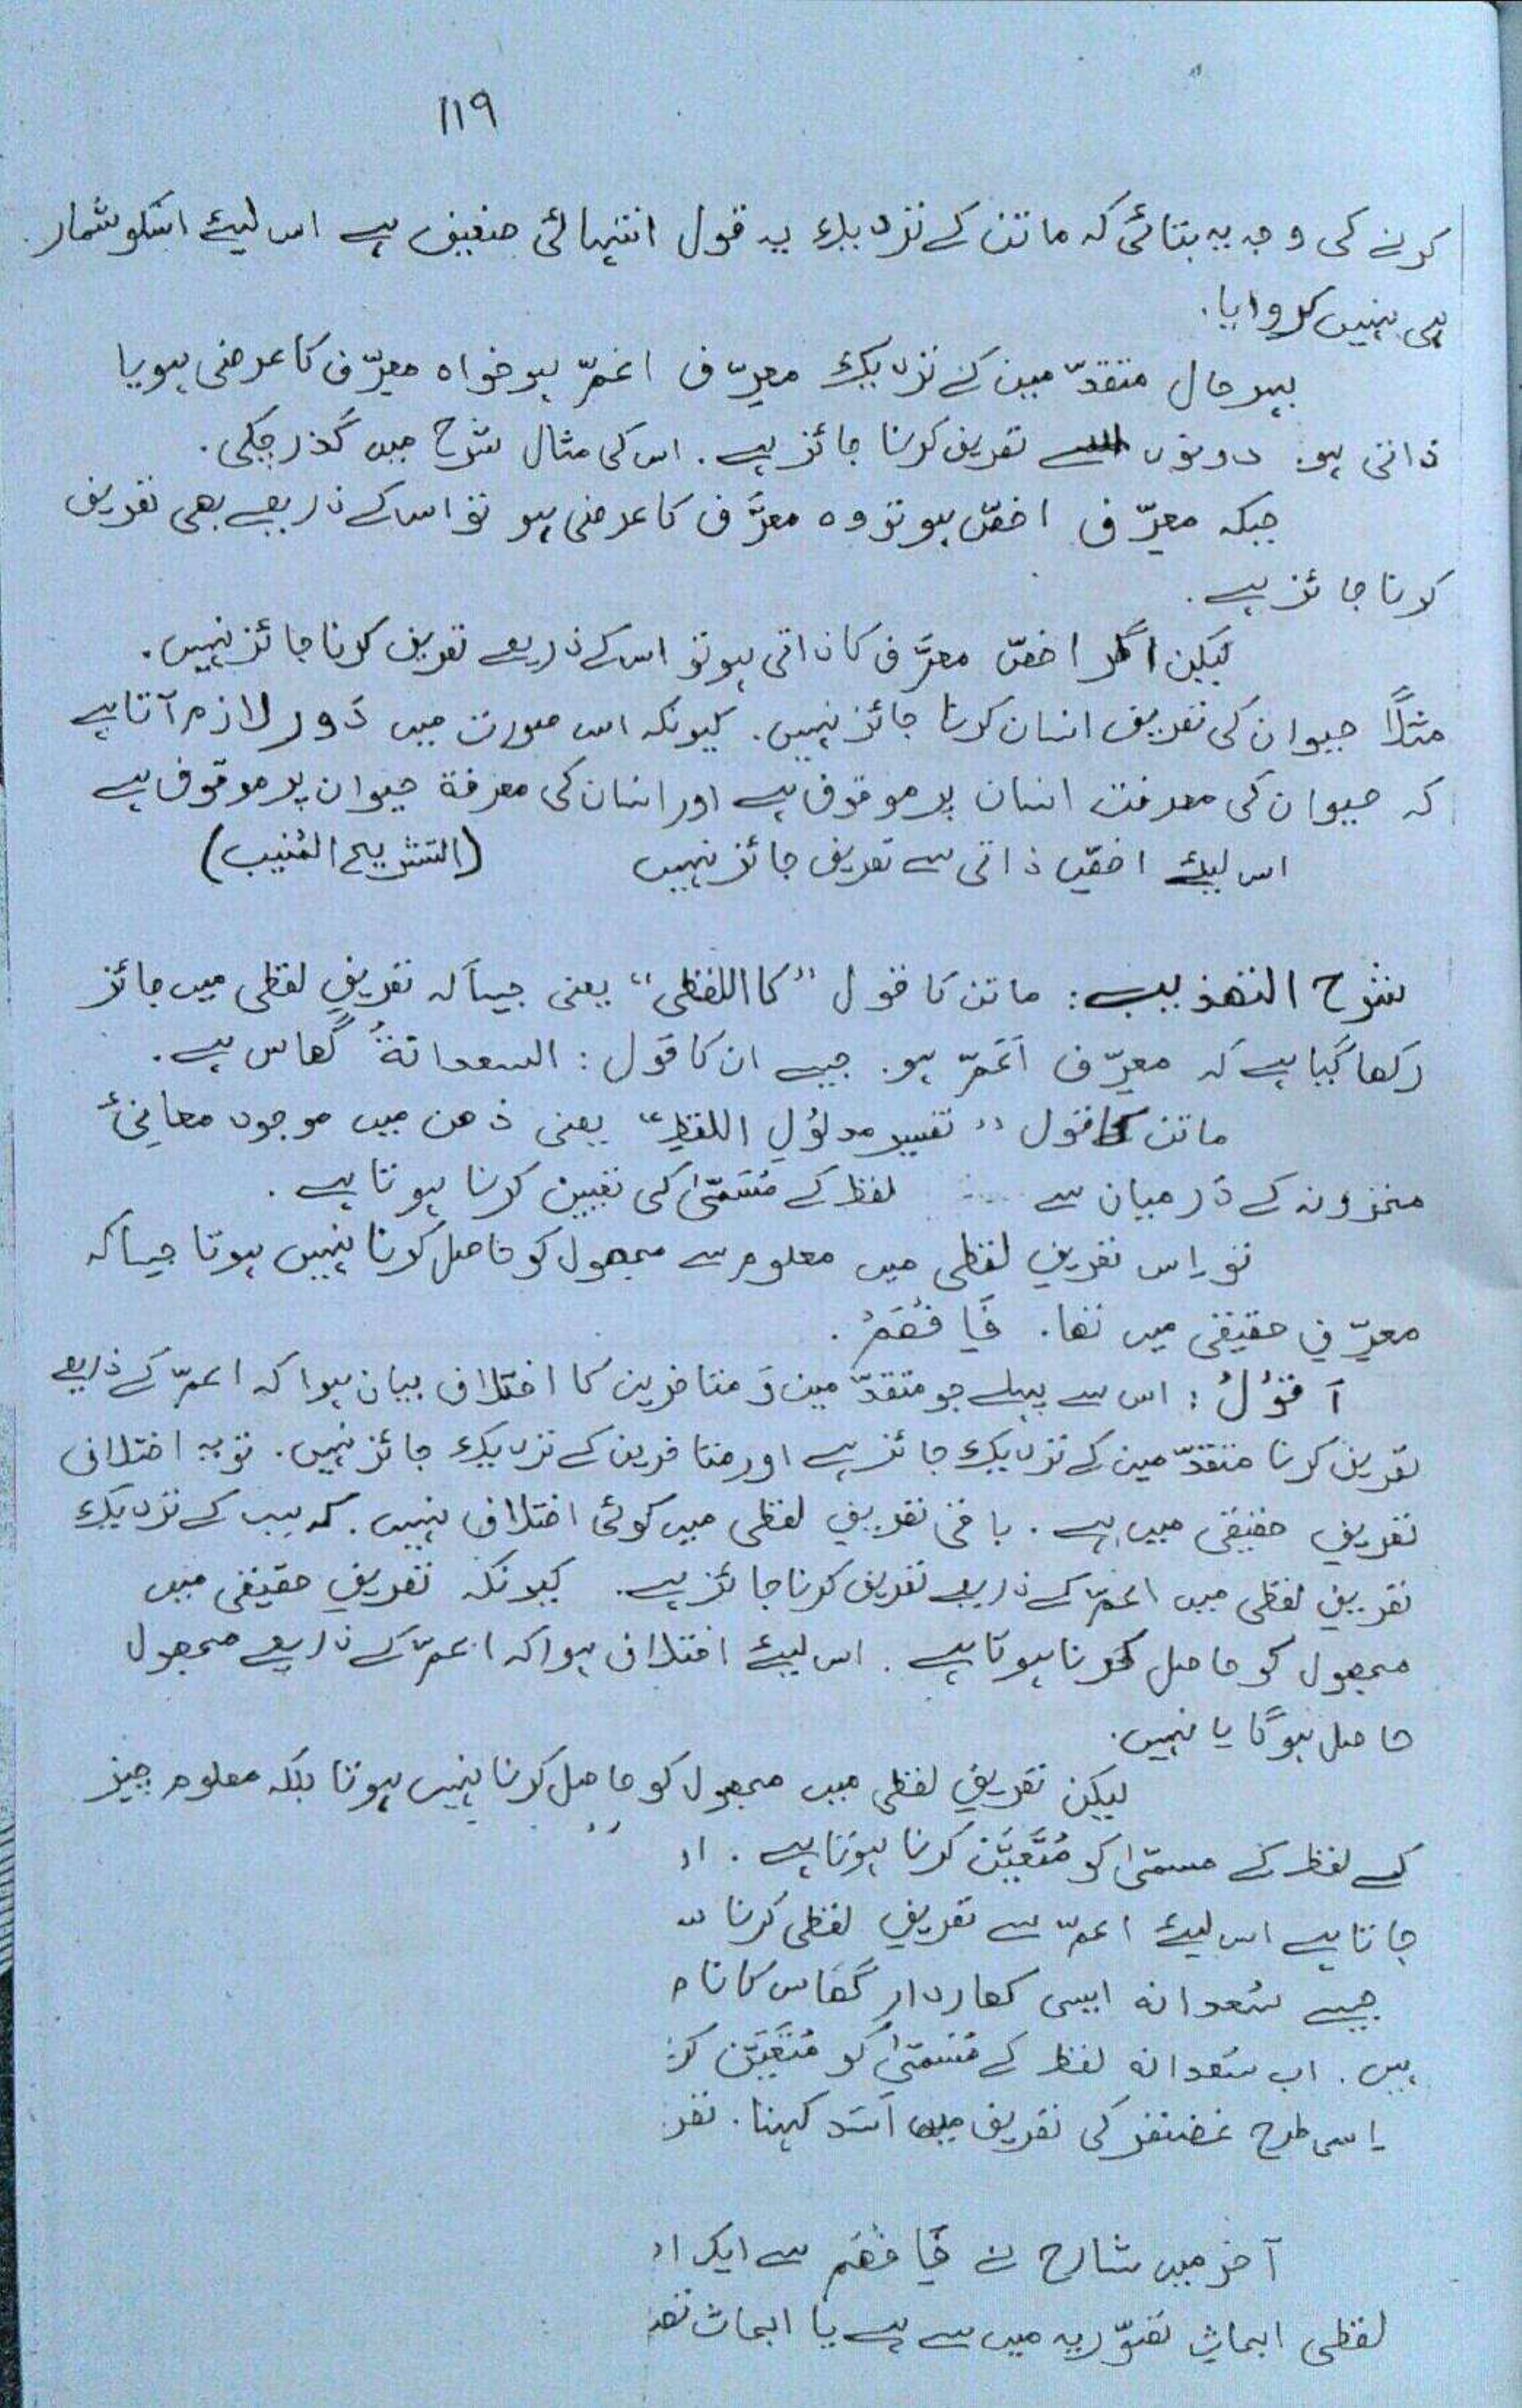 119
کرنے کی وجہ یہ بتائی کہ ماتن کے نزدیک یہ قول انتہائی ضعیف ہے اس لیئے اسکو شمار
ہی نہیں کروایا.
بہر حال متقدّمین کے نزدیک معرِّف اعمّ ہو خواہ معرَّف کا عرضی ہو یا
ذاتی ہو. دونوں سے تعریف کرنا جائز ہے. اس کی مثال شرح میں گذر چکی.
جبکہ معرِّف اخصّ ہو تو وہ معرَّف کا عرضی ہو تو اس کے ذریعے بھی تعریف
کرنا جائز ہے.
لیکن اگر اخصّ معرَّف کا ذاتی ہو تو اس کے ذریعے تعریف کرنا جائز نہیں.
مثلاً حیوان کی تعریف انسان کرنا جائز نہیں. کیونکہ اس صورت میں دَور لازم آتا ہے
کہ حیوان کی معرفت انسان پر موقوف ہے اور انسان کی معرفة حیوان پر موقوف ہے
اس لیئے اخصّ ذاتی سے تعریف جائز نہیں (التشریح المُنیب)
شرح التھذیب: ماتن کا قول "کا اللفظی" یعنی جیسا کہ تعریفِ لفظی میں جائز
رکھا گیا ہے کہ معرِّف اَعَمّ ہو. جیسے ان کا قول: السعدانةُ گھاس ہے.
ماتن کا قول "تفسیر مدلؤلِ اللفظِ" یعنی ذھن میں موجود معانیٔ
مخزونہ کے دَرمیان سے لفظ کے مُسَمّیٰ کی تعیین کرنا ہوتا ہے.
تو اِس تعریفِ لفظی میں معلوم سے مجھول کو حاصل کرنا نہیں ہوتا جیسا کہ
معرِّفِ حقیقی میں تھا. فَافْھَمْ.
اَقُوْلُ: اس سے پہلے جو متقدّمین وَ متاخرین کا اختلاف بیان ہوا کہ اعمّ کے ذریعے
تعریف کرنا متقدّمین کے نزدیک جائز ہے اور متاخرین کے نزدیک جائز نہیں. تو یہ اختلاف
تعریفِ حقیقی میں ہے. باقی تعریفِ لفظی میں کوئی اختلاف نہیں. کہ سب کے نزدیک
تعریفِ لفظی میں اعمّ کے ذریعے تعریف کرنا جائز ہے. کیونکہ تعریفِ حقیقی میں
مجھول کو حاصل کرنا ہوتا ہے. اس لیئے اختلاف ہوا کہ اعمّ کے ذریعے مجھول
حاصل ہوگا یا نہیں.
لیکن تعریفِ لفظی میں مجھول کو حاصل کرنا نہیں ہوتا بلکہ معلوم چیز
کے لفظ کے مسمّیٰ کو مُتَعَیَّن کرنا ہوتا ہے.
جاتا ہے اس لیئے اعمّ سے تعریفِ لفظی کرنا
جیسے سَعدانہ ایسی کھاردار گھَاس کا نام
ہیں. اب سَعدانہ لفظ کے مُسَمّیٰ کو مُتَعَیَّن
اِسی طرح غضنفر کی تعریف میں اَسَد کہنا.
آخر میں شارح نے فَافْھَم سے ایک
لفظی ابحاثِ تصوّریہ میں سے ہے یا ابحاث